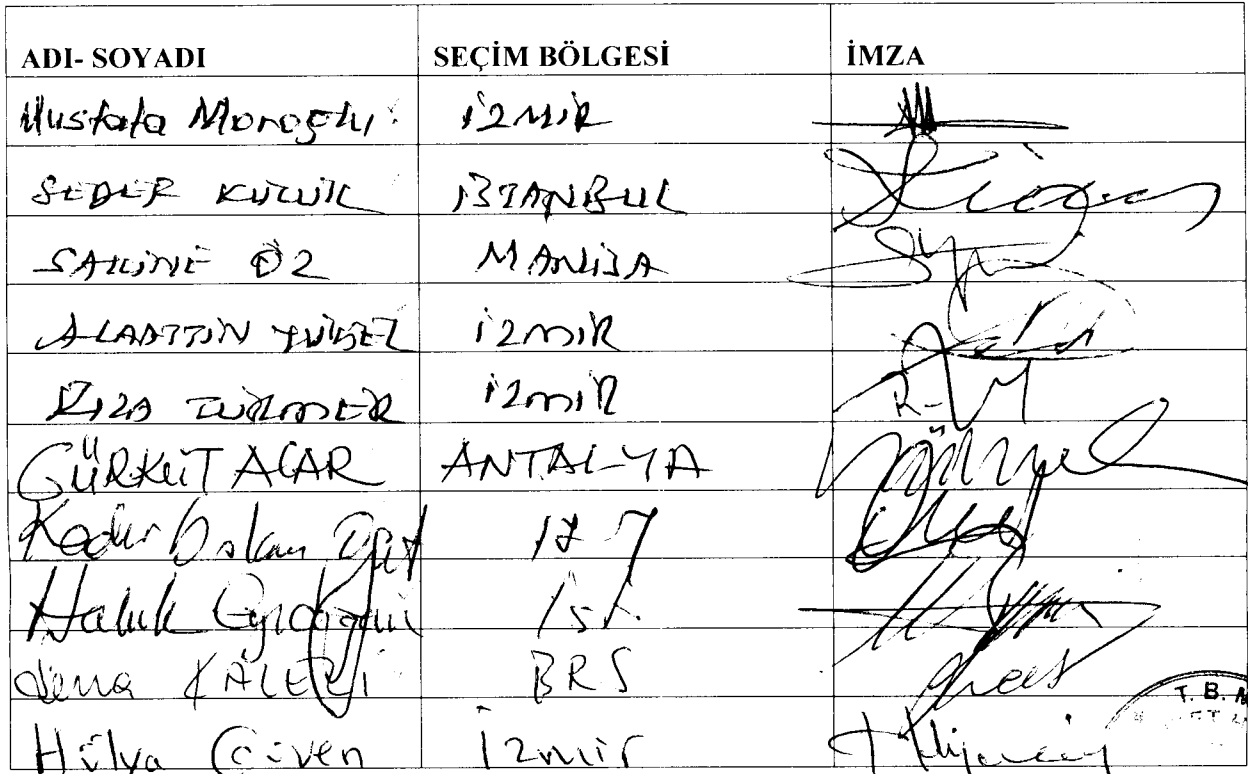 ADI- SOYADI SEÇİM BÖLGESİ İMZA
Mustafa Moroğlu İZMİR
SEDEF KÜÇÜK İSTANBUL
SAKİNE ÖZ MANİSA
ALAATTİN YÜKSEL İZMİR
RIZA TÜRMEN İZMİR
GÜRKUT ACAR ANTALYA
Kadir
Haluk Eyidoğan İst.
Sena KALELİ BRS
Hülya Güven İzmir
T. B. M